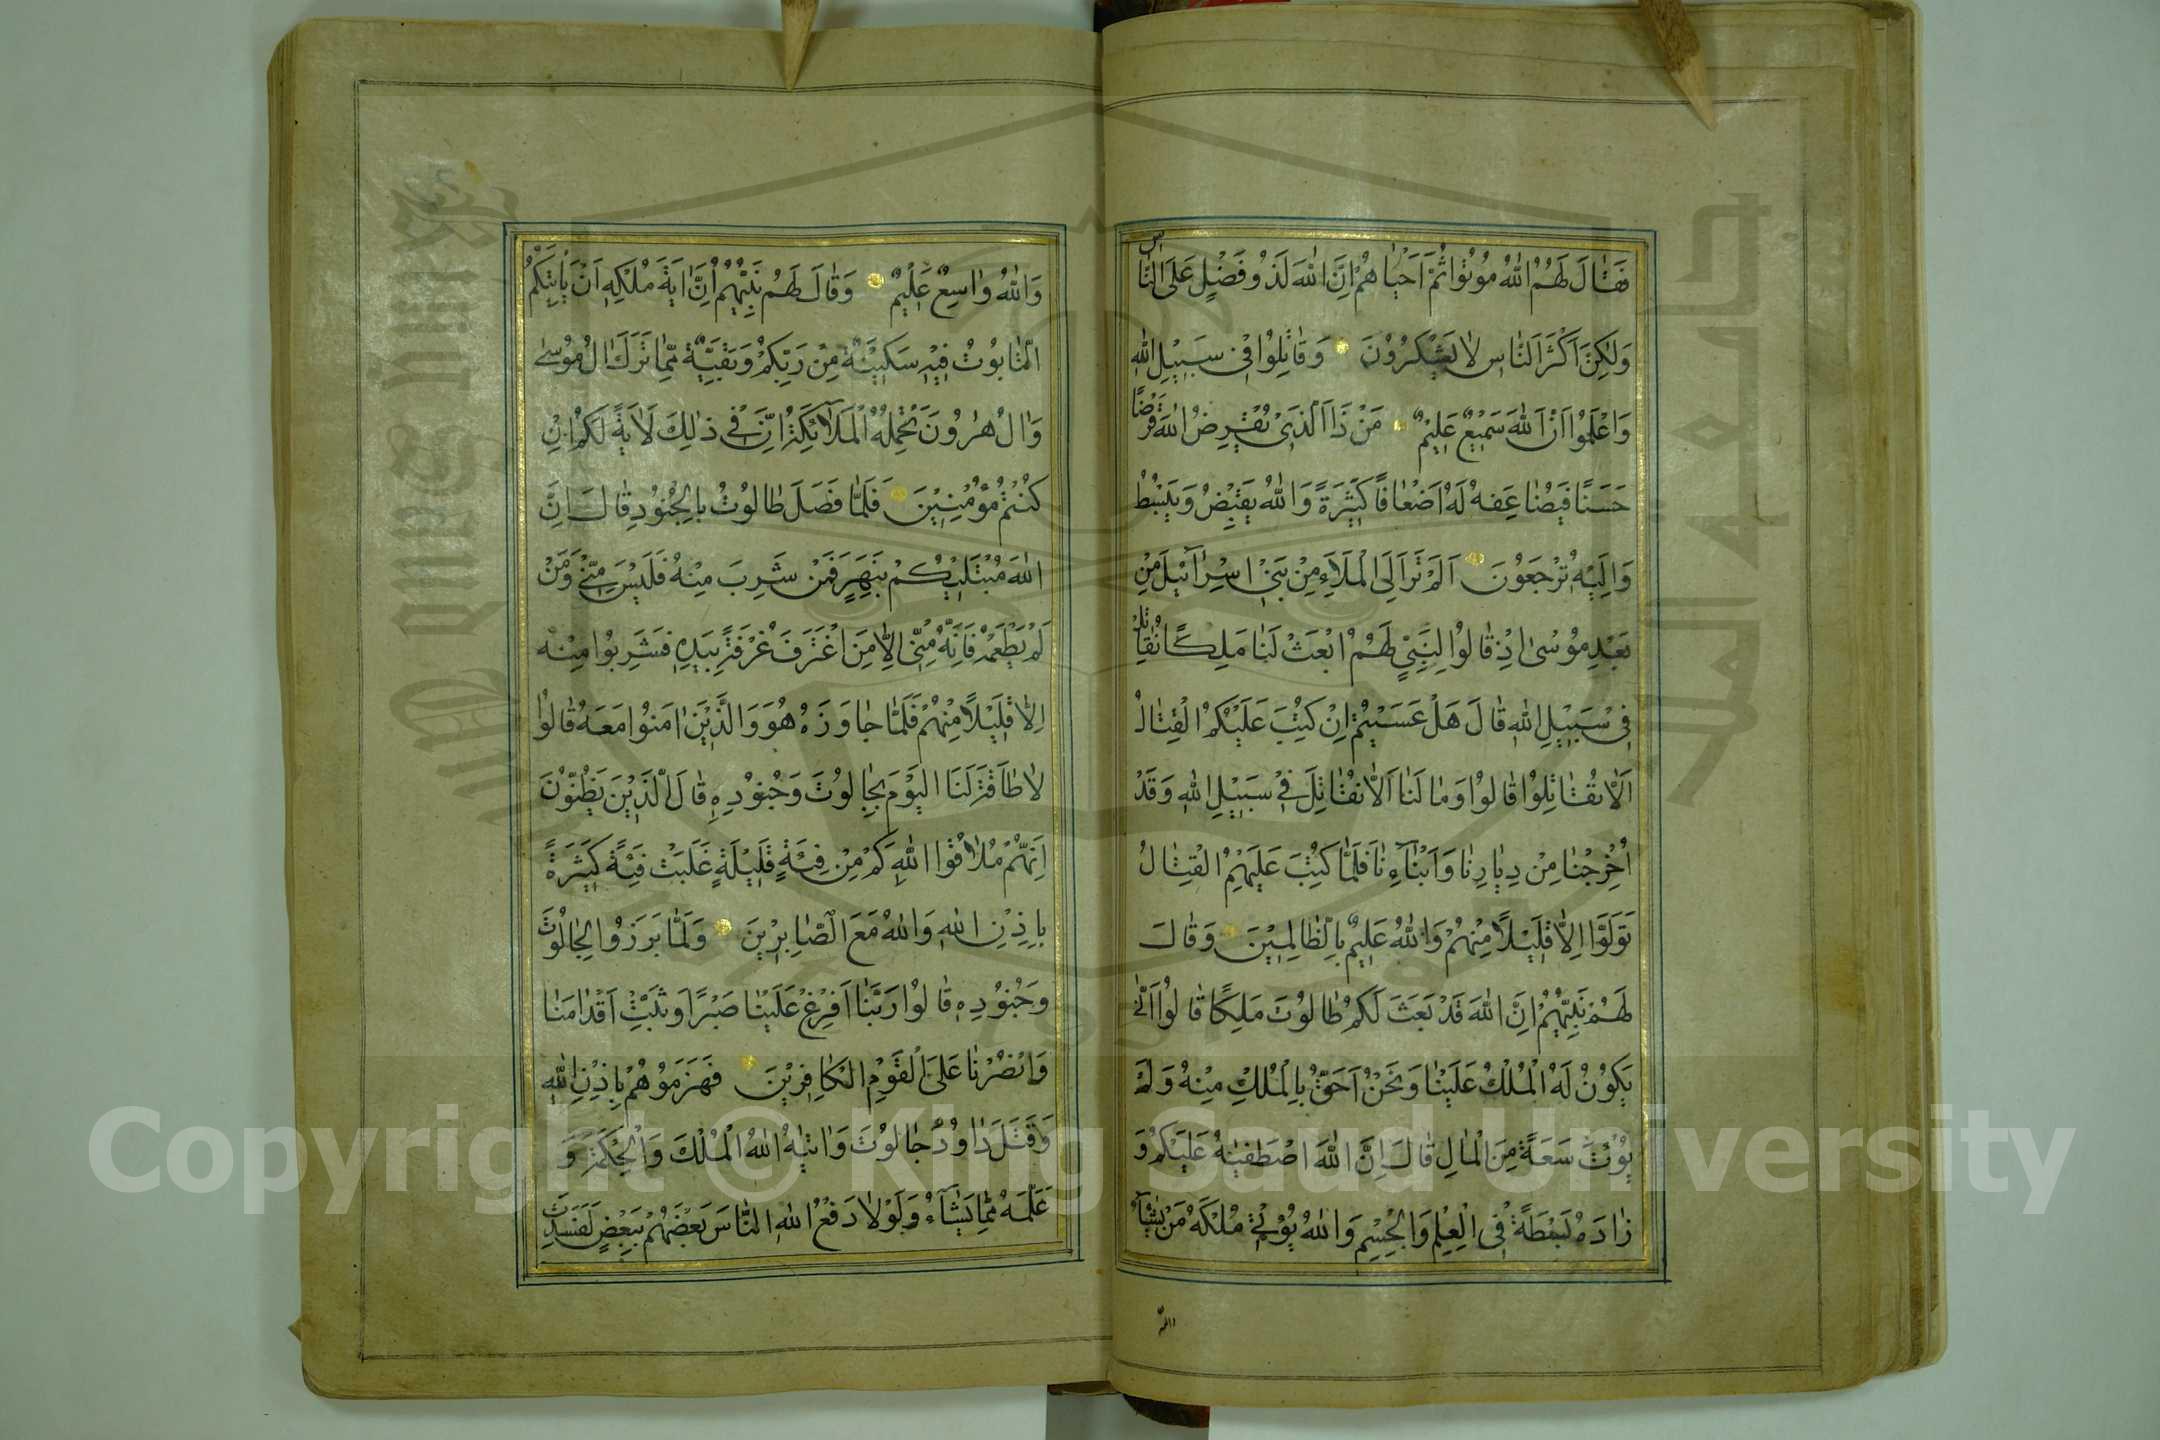 فَقَالَ لَهُمُ اللهُ مُوتُوا ثُمَّ اَحْيَاهُمْ اِنَّ اللهَ لَذُو فَضْلٍ عَلَى النَّاسِ
وَلٰكِنَّ اَكْثَرَ النَّاسِ لَا يَشْكُرُونَ وَقَاتِلُوا فِي سَبِيلِ اللهِ
وَاعْلَمُوا اَنَّ اللهَ سَمِيعٌ عَلِيمٌ مَنْ ذَا الَّذِي يُقْرِضُ اللهَ قَرْضًا
حَسَنًا فَيُضَاعِفَهُ لَهُ اَضْعَافًا كَثِيرَةً وَاللهُ يَقْبِضُ وَيَبْسُطُ
وَاِلَيْهِ تُرْجَعُونَ اَلَمْ تَرَ اِلَى الْمَلَاءِ مِنْ بَنِي اِسْرَآئِيلَ مِنْ
بَعْدِ مُوسٰى اِذْ قَالُوا لِنَبِيٍّ لَهُمُ ابْعَثْ لَنَا مَلِكًا نُقَاتِلْ
فِي سَبِيلِ اللهِ قَالَ هَلْ عَسَيْتُمْ اِنْ كُتِبَ عَلَيْكُمُ الْقِتَالُ
اَلَّا تُقَاتِلُوا قَالُوا وَمَا لَنَا اَلَّا نُقَاتِلَ فِي سَبِيلِ اللهِ وَقَدْ
اُخْرِجْنَا مِنْ دِيَارِنَا وَاَبْنَآءِنَا فَلَمَّا كُتِبَ عَلَيْهِمُ الْقِتَالُ
تَوَلَّوْا اِلَّا قَلِيلًا مِنْهُمْ وَاللهُ عَلِيمٌ بِالظَّالِمِينَ وَقَالَ
لَهُمْ نَبِيُّهُمْ اِنَّ اللهَ قَدْ بَعَثَ لَكُمْ طَالُوتَ مَلِكًا قَالُوا اَنّٰى
يَكُونُ لَهُ الْمُلْكُ عَلَيْنَا وَنَحْنُ اَحَقُّ بِالْمُلْكِ مِنْهُ وَلَمْ
يُؤْتَ سَعَةً مِنَ الْمَالِ قَالَ اِنَّ اللهَ اصْطَفٰيهُ عَلَيْكُمْ وَ
زَادَهُ بَسْطَةً فِي الْعِلْمِ وَالْجِسْمِ وَاللهُ يُؤْتِي مُلْكَهُ مَنْ يَشَآءُ
والله
وَاللهُ وَاسِعٌ عَلِيمٌ وَقَالَ لَهُمْ نَبِيُّهُمْ اِنَّ اٰيَةَ مُلْكِهِ اَنْ يَاْتِيَكُمُ
التَّابُوتُ فِيهِ سَكِينَةٌ مِنْ رَبِّكُمْ وَبَقِيَّةٌ مِمَّا تَرَكَ اٰلُ مُوسٰى
وَاٰلُ هٰرُونَ تَحْمِلُهُ الْمَلَآئِكَةُ اِنَّ فِي ذٰلِكَ لَاٰيَةً لَكُمْ اِنْ
كُنْتُمْ مُؤْمِنِينَ فَلَمَّا فَصَلَ طَالُوتُ بِالْجُنُودِ قَالَ اِنَّ
اللهَ مُبْتَلِيكُمْ بِنَهَرٍ فَمَنْ شَرِبَ مِنْهُ فَلَيْسَ مِنِّي وَمَنْ
لَمْ يَطْعَمْهُ فَاِنَّهُ مِنِّي اِلَّا مَنِ اغْتَرَفَ غُرْفَةً بِيَدِهِ فَشَرِبُوا مِنْهُ
اِلَّا قَلِيلًا مِنْهُمْ فَلَمَّا جَاوَزَهُ هُوَ وَالَّذِينَ اٰمَنُوا مَعَهُ قَالُوا
لَا طَاقَةَ لَنَا الْيَوْمَ بِجَالُوتَ وَجُنُودِهِ قَالَ الَّذِينَ يَظُنُّونَ
اَنَّهُمْ مُلَاقُوا اللهِ كَمْ مِنْ فِئَةٍ قَلِيلَةٍ غَلَبَتْ فِئَةً كَثِيرَةً
بِاِذْنِ اللهِ وَاللهُ مَعَ الصَّابِرِينَ وَلَمَّا بَرَزُوا لِجَالُوتَ
وَجُنُودِهِ قَالُوا رَبَّنَا اَفْرِغْ عَلَيْنَا صَبْرًا وَثَبِّتْ اَقْدَامَنَا
وَانْصُرْنَا عَلَى الْقَوْمِ الْكَافِرِينَ فَهَزَمُوهُمْ بِاِذْنِ اللهِ
وَقَتَلَ دَاوُدُ جَالُوتَ وَاٰتٰيهُ اللهُ الْمُلْكَ وَالْحِكْمَةَ وَ
عَلَّمَهُ مِمَّا يَشَآءُ وَلَوْلَا دَفْعُ اللهِ النَّاسَ بَعْضَهُمْ بِبَعْضٍ لَفَسَدَتِ
Copyright © King Saud University